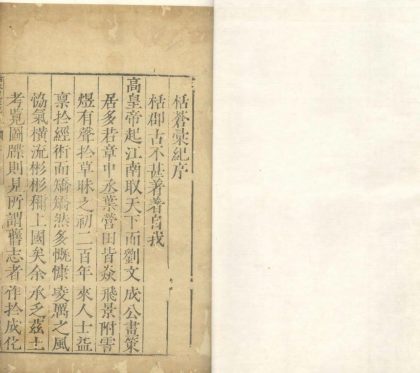 栝蒼彚紀序
栝郡古不甚著著自我
高皇帝起江南取天下而劉文成公畫策
居多若章中丞葉營田皆焱飛景附雲
煜有聲於草昧之初二百年來人士益
稟於經術而矯矯然多慨慷凌厲之風
恊氣橫流彬彬稱上國矣余承乏茲土
考覽圖牒則見所謂舊志者作於成化